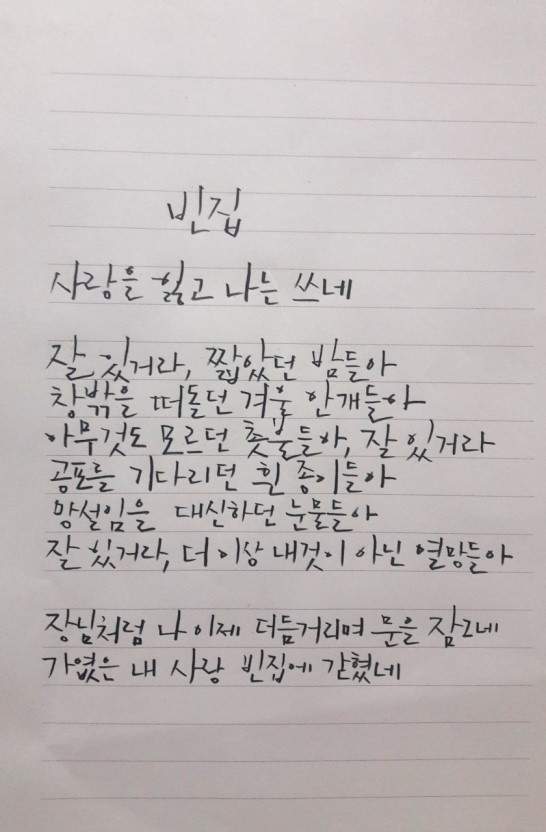 빈집
사랑을 잃고 나는 쓰네
잘 있거라, 짧았던 밤들아
창밖을 떠돌던 겨울 안개들아
아무것도 모르던 촛불들아, 잘 있거라
공포를 기다리던 흰 종이들아
망설임을 대신하던 눈물들아
잘 있거라, 더 이상 내것이 아닌 열망들아
장님처럼 나 이제 더듬거리며 문을 잠그네
가엾은 내 사랑 빈집에 갇혔네